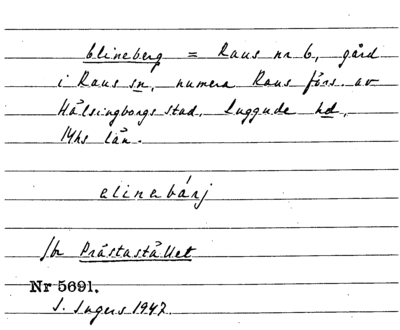 blineberg = Raus nr 6, gård
i Raus sn, numera Raus förs. av
Hälsingborgs stad, Luggude hd,
Mhs län.
elinabárj
för Prästastället
Nr 5691.
I. Ingers 1947